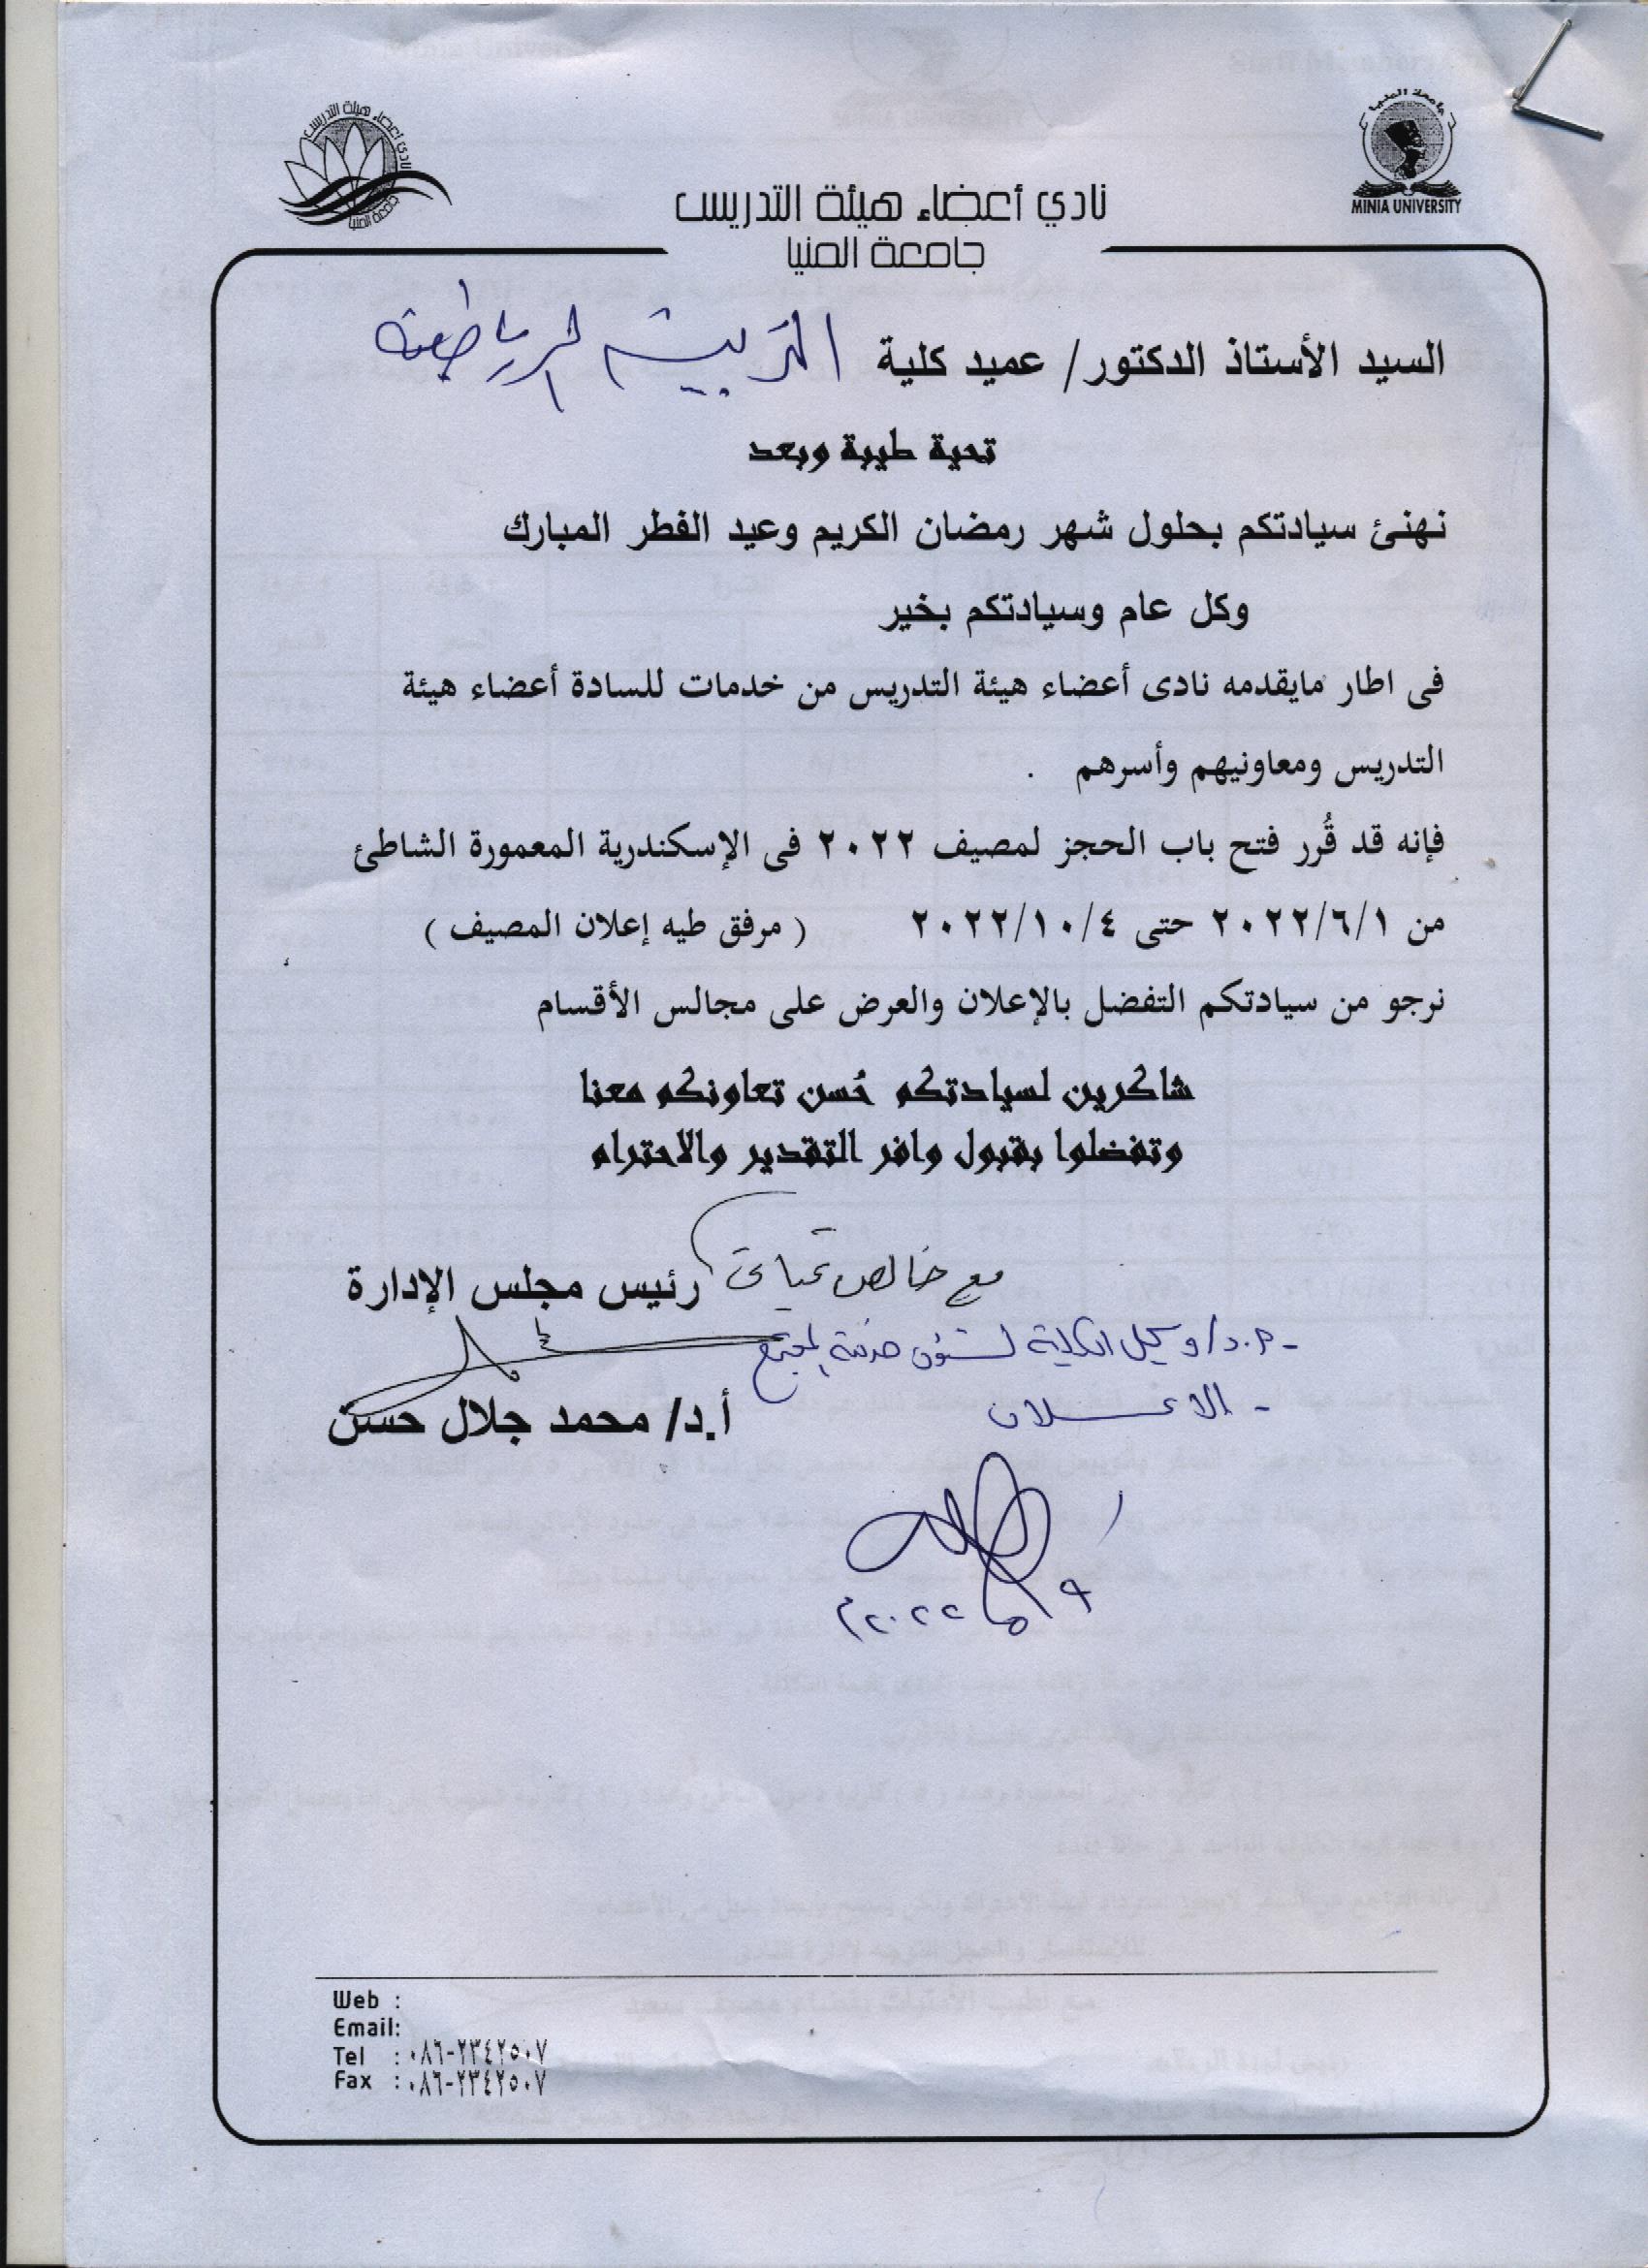 نادي أعضاء هيئة التدريس
جامعة المنيا
جامعة المنيا
MINIA UNIVERSITY
نادي أعضاء هيئة التدريس
جامعة المنيا
السيد الأستاذ الدكتور/ عميد كلية التربية الرياضية
تحية طيبة وبعد
نهنئ سيادتكم بحلول شهر رمضان الكريم وعيد الفطر المبارك
وكل عام وسيادتكم بخير
فى اطار مايقدمه نادى أعضاء هيئة التدريس من خدمات للسادة أعضاء هيئة
التدريس ومعاونيهم وأسرهم .
فإنه قد قُرر فتح باب الحجز لمصيف ٢٠٢٢ فى الإسكندرية المعمورة الشاطئ
من ٢٠٢٢/٦/١ حتى ٢٠٢٢/١٠/٤ ( مرفق طيه إعلان المصيف )
نرجو من سيادتكم التفضل بالإعلان والعرض على مجالس الأقسام
شاكرين لسيادتكم حُسن تعاونكم معنا
وتفضلوا بقبول وافر التقدير والاحترام
مع خالص تحياتى
رئيس مجلس الإدارة
- أ.د/ وكيل الكلية لشئون خدمة المجتمع
- الاعلان
أ.د/ محمد جلال حسن
٩/٥/٢٠٢٢م
Web :
Email:
Tel : ٠٨٦-٢٣٤٢٥٠٧
Fax : ٠٨٦-٢٣٤٢٥٠٧